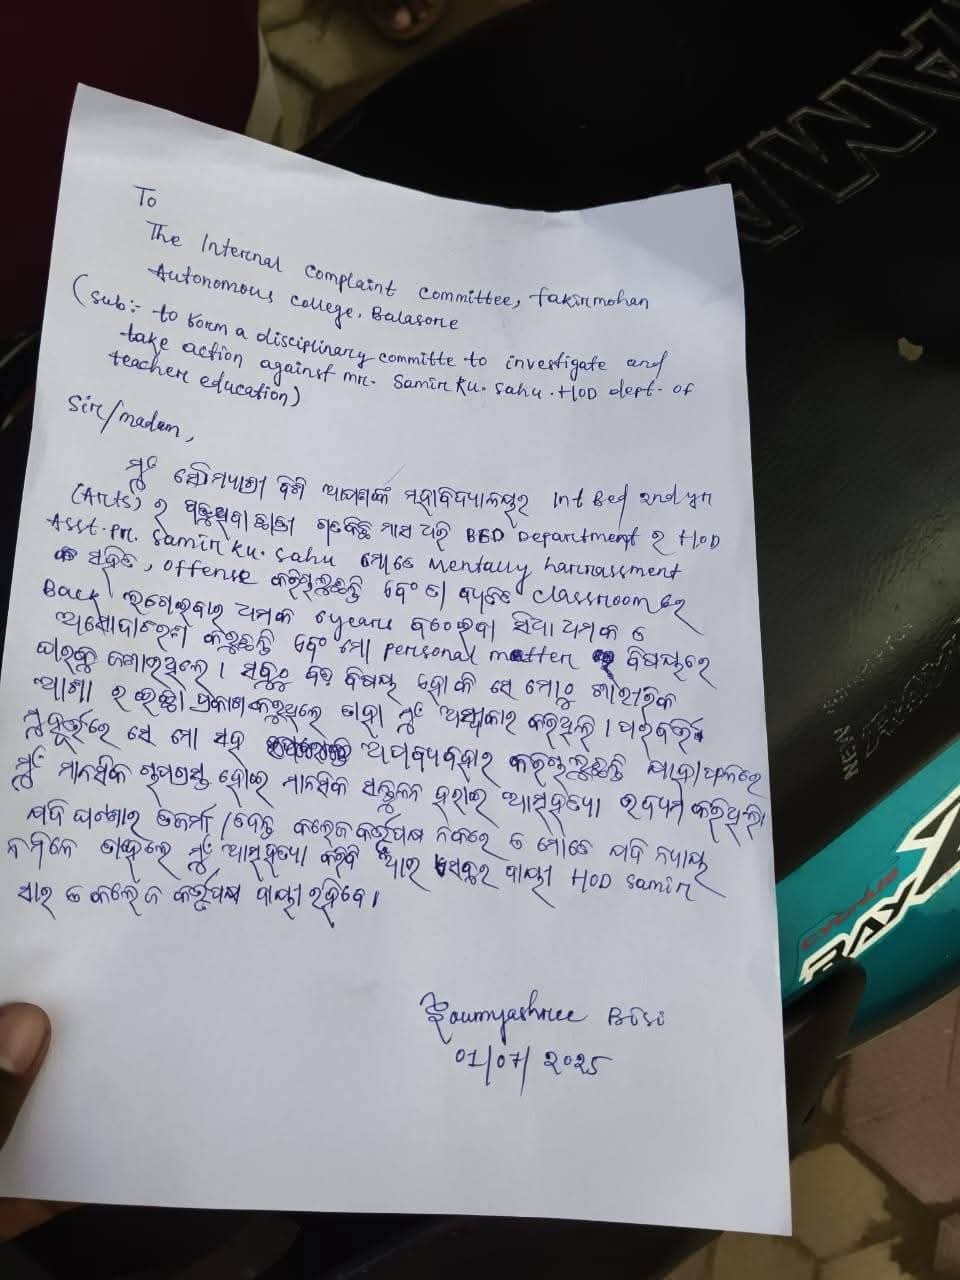 To
The Internal Complaint Committee, fakirmohan
Autonomous college, Balasore
(Sub:- to form a disciplinary committe to investigate and
take action against mr. Samir Ku. Sahu. HOD dept. of
teacher education)
Sir/madam,
ମୁଁ ସୌମ୍ୟଶ୍ରୀ ବିଶି ଆପଣଙ୍କ ମହାବିଦ୍ୟାଳୟର Int Bed 2nd yr
(Arts) ର ପଢୁଥିବା ଛାତ୍ରୀ ଗତକିଛି ମାସ ଧରି BED Department ର HOD
Asst. pr. Samir Ku. Sahu ମୋତେ Mentally harrassment
ସହିତ, offense କରିଚାଲୁଛନ୍ତି ଏବଂ classroom ରେ
Back ଲଗେଇବାର ଧମକ years ଧମକ ଓ
କରୁଛନ୍ତି ଏବଂ ମୋ personal matter ବିଷୟରେ
ଘରକୁ ଜଣାଇଥିଲେ । ସବୁଠୁ ବଡ଼ ବିଷୟ ହେଲା କି ସେ ମୋଠୁ ଶାରୀରିକ
ଆଶା ର ଇଚ୍ଛା ପ୍ରକାଶ କରୁଥିଲେ ତାହା ମୁଁ ଅସ୍ୱୀକାର କରିଥିଲି । ପରବର୍ତ୍ତି
ମୁହୂର୍ତ୍ତରେ ସେ ମୋ ସହ ଅସଦବ୍ୟବହାର କରିଚାଲୁଛନ୍ତି ଯାହା ଫଳରେ
ମୁଁ ମାନସିକ ଚାପଗ୍ରସ୍ତ ହୋଇ ମାନସିକ ସନ୍ତୁଳନ ହରାଇ ଆତ୍ମହତ୍ୟା ଉଦ୍ୟମ କରିଥିଲି।
ଯଦି ଘଟଣାର ତର୍ଜମା କଲେଜ କର୍ତ୍ତୃପକ୍ଷ ନକରେ ଓ ମୋତେ ଯଦି ନ୍ୟାୟ
ନମିଳେ ତାହେଲେ ମୁଁ ଆତ୍ମହତ୍ୟା କରିବି ଆର ସବୁର ଦାୟୀ HOD Samir
ସାର ଓ କଲେଜ କର୍ତ୍ତୃପକ୍ଷ ଦାୟୀ ରହିବେ ।
Soumyashree Bisi
01/07/2025
CYGNUS
RAY
NEW